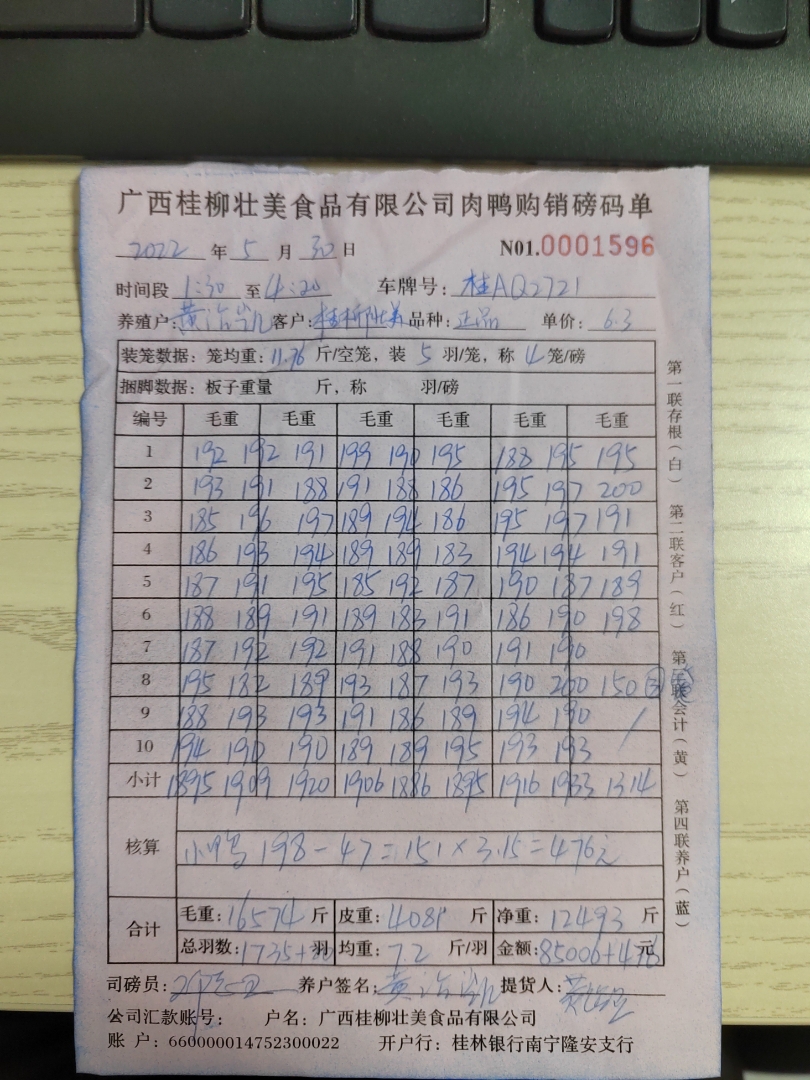 广西桂柳壮美食品有限公司肉鸭购销磅码单
2022 年 5 月 30 日 N01.0001596
时间段 1:30 至 4:20 车牌号: 桂AQ2721
养殖户: 黄治凯 客户: 桂柳壮美 品种: 正品 单价: 6.3
装笼数据: 笼均重: 11.76 斤/空笼, 装 5 羽/笼, 称 4 笼/磅
捆脚数据: 板子重量 斤, 称 羽/磅
编号 毛重 毛重 毛重 毛重 毛重 毛重
1 192 192 191 199 190 195 188 195 195
2 193 191 188 191 188 186 195 197 200
3 185 196 197 189 194 186 195 197 191
4 186 193 194 189 189 183 194 194 191
5 187 191 195 185 192 187 190 187 189
6 188 189 191 189 183 191 186 190 198
7 187 192 192 191 188 190 191 190
8 195 182 189 193 187 193 190 200 150
9 188 193 193 191 186 189 194 190 /
10 194 190 190 189 189 195 193 193 /
小计 1895 1909 1920 1906 1886 1895 1916 1933 1314
核算 小鸭 198-47=151×3.15=476元
合计 毛重: 16574 斤 皮重: 4081 斤 净重: 12493 斤
总羽数: 1735+30 羽 均重: 7.2 斤/羽 金额: 85006+476 元
司磅员: 养户签名: 黄治凯 提货人:
公司汇款账号: 户名: 广西桂柳壮美食品有限公司
账 户: 660000014752300022 开户行: 桂林银行南宁隆安支行
第一联存根(白) 第二联客户(红) 第三联会计(黄) 第四联养户(蓝)